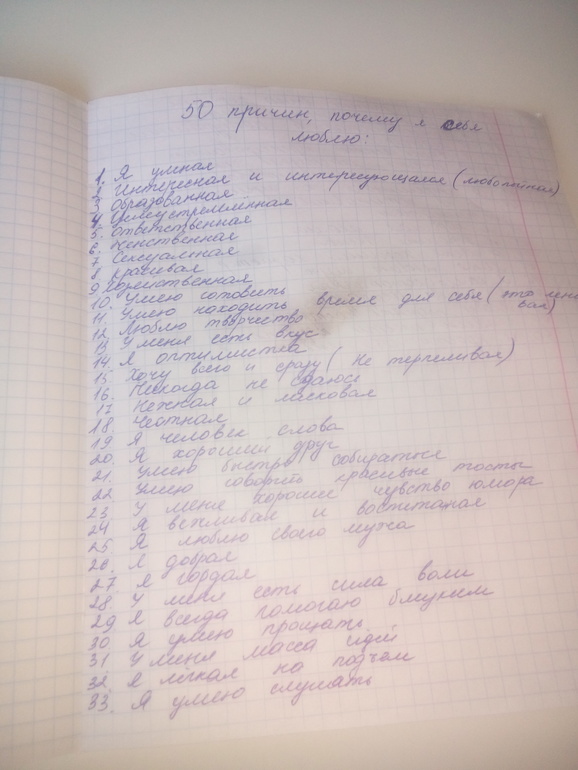 50 причин, почему я себя
люблю:
1. Я умная
2. Интересная и интересующаяся (любопытная)
3. Образованная
4. Целеустремлённая
5. Ответственная
6. Женственная
7. Сексуальная
8. Красивая
9. Божественная
10. Умею готовить
11. Умею находить время для себя (это мено
вая)
12. Люблю творчество
13. У меня есть вкус
14. Я оптимистка
15. Хочу всего и сразу (Не терпеливая)
16. Никогда не сдаюсь
17. Нежная и ласковая
18. Честная
19. Я человек слова
20. Я хороший друг
21. Умею быстро собираться
22. Умею говорить красивые тосты
23. У меня хорошее чувство юмора
24. Я вежливая и воспитаная
25. Я люблю своего мужа
26. Я добрая
27. Я гордая
28. У меня есть сила воли
29. Я всегда помогаю близким
30. Я умею прощать
31. У меня масса идей
32. Я лёгкая на подъём
33. Я умею слушать